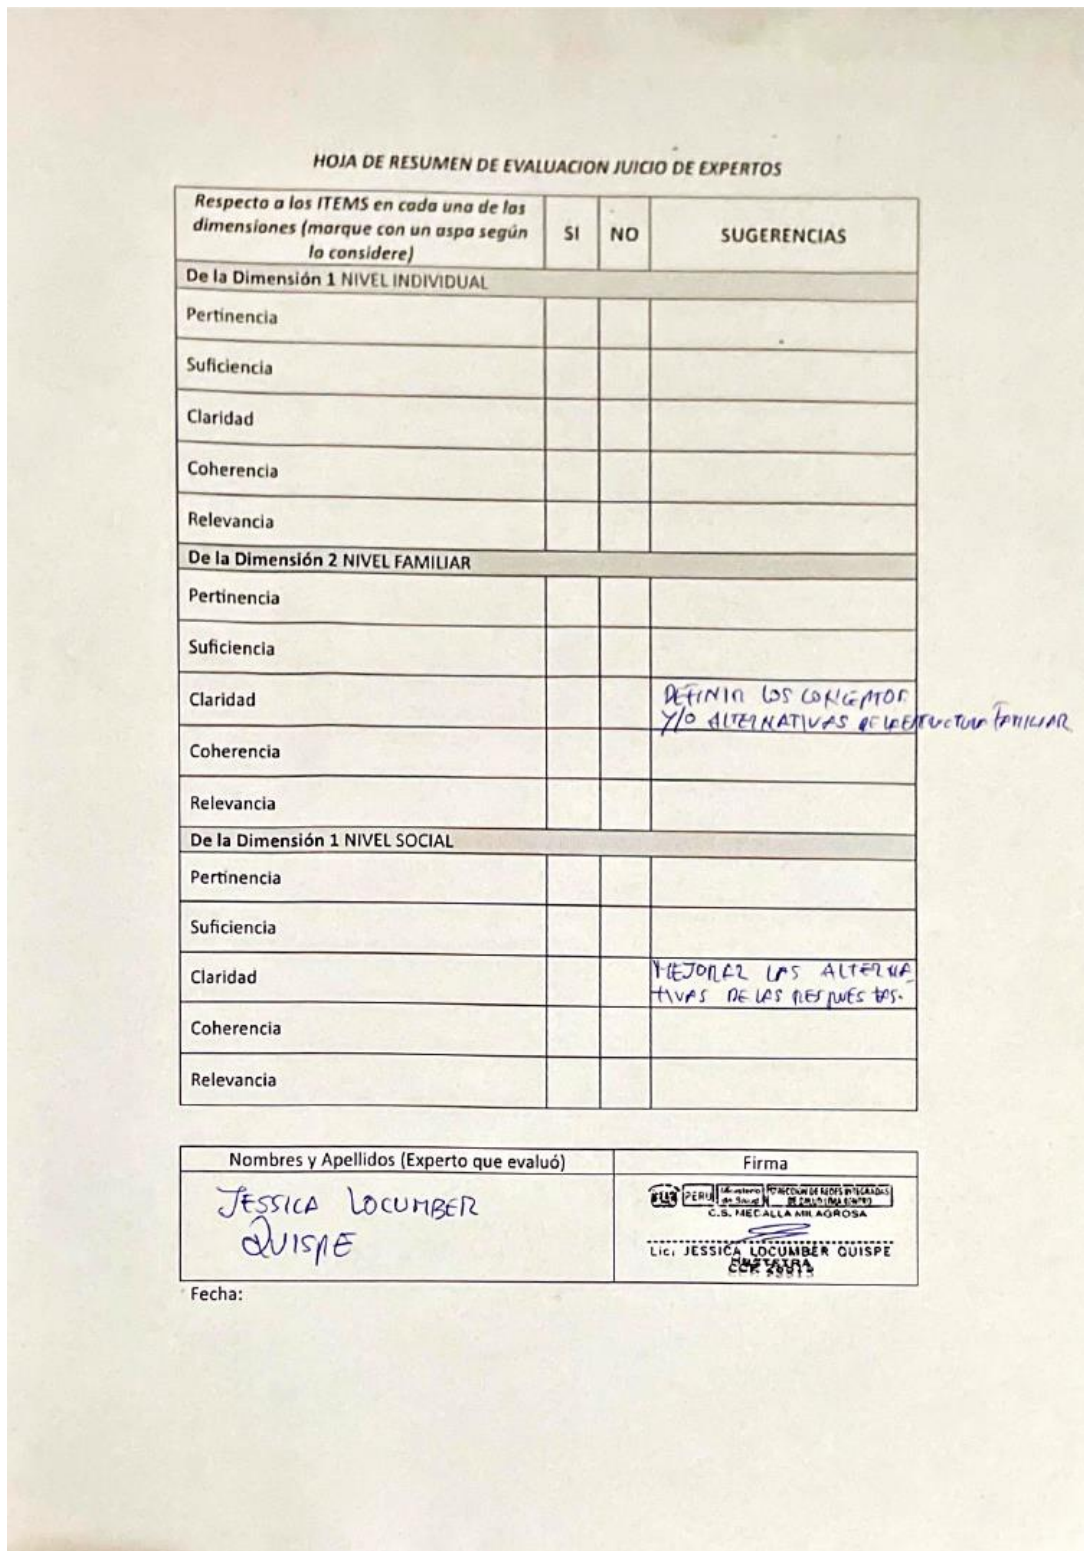 HOJA DE RESUMEN DE EVALUACION JUICIO DE EXPERTOS
Respecto a los ITEMS en cada una de las
dimensiones (marque con un aspa según
lo considere)
SI
NO
SUGERENCIAS
De la Dimensión 1 NIVEL INDIVIDUAL
Pertinencia
Suficiencia
Claridad
Coherencia
Relevancia
De la Dimensión 2 NIVEL FAMILIAR
Pertinencia
Suficiencia
Claridad
DEFINIR LOS CONCEPTOS
Y/O ALTERNATIVAS DE LA ESTRUCTURA FAMILIAR
Coherencia
Relevancia
De la Dimensión 1 NIVEL SOCIAL
Pertinencia
Suficiencia
Claridad
MEJORAR LAS ALTERNA
TIVAS DE LAS RESPUESTAS.
Coherencia
Relevancia
Nombres y Apellidos (Experto que evaluó)
Firma
JESSICA LOCUMBER
QUISPE
PERÚ
Ministerio
de Salud
DIRECCIÓN DE REDES INTEGRADAS
DE SALUD LIMA CENTRO
C.S. MEDALLA MILAGROSA
Lic. JESSICA LOCUMBER QUISPE
Fecha: